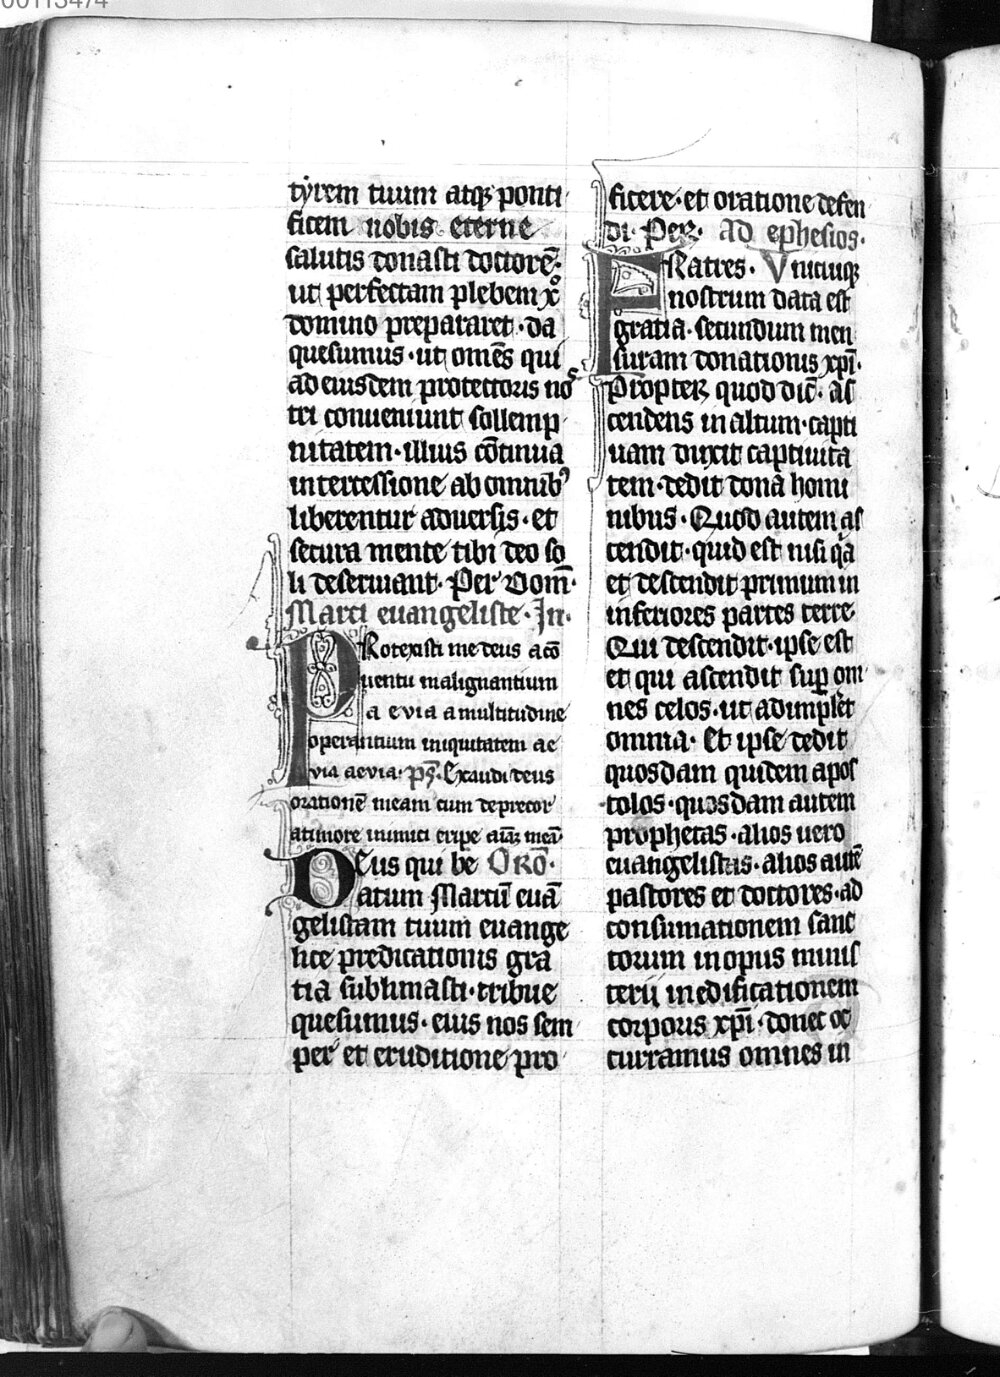 tyrem tuum atq; ponti
ficem nobis eterne
salutis donasti doctorē.
ut perfectam plebem xp̄o
domino prepararet · da
quesumus · ut om̄es qui
ad eiusdem protectoris nos
tri conueniunt sollemp
nitatem · illius cōtinua
intercessione ab omnib⁹
liberentur aduersis · et
secura mente tibi deo so
li deseruiant · Per dom̄ ·
Marci euangeliste · In ·
PRotexisti me deus a cō
uentu malignantium
a e via a multitudine
operantium iniquitatem ae
via aevia · p̄s · Exaudi deus
orationē meam cum deprecor
a timore inimici eripe aīaꝫ meā
DEus qui be ORō ·
atum Marcū euā
gelistam tuum euange
lice predicationis gra
tia sublimasti · tribue
quesumus · eius nos sem
per et eruditione pro
ficere · et oratione defen
di · Per · Ad ephesios ·
FRatres · Vnicuiq;
nostrum data est
gratia · secundum men
suram donationis xp̄i ·
Propter quod dic̄ · as
cendens in altum · capti
uam duxit captiuita
tem · dedit dona homi
nibus · Quod autem as
cendit · quid est nisi q̄a
et descendit primum in
inferiores partes terre ·
Qui descendit · ipse est
et qui ascendit sup̄ om
nes celos · ut adimpl̄et
omnia · Et ipse dedit
quosdam quidem apos
tolos · quosdam autem
prophetas · alios uero
euangelistas · alios autē
pastores et doctores · ad
consumationem sanc
torum in opus minis
terii in edificationem
corporis xp̄i · donec oc
curramus omnes in